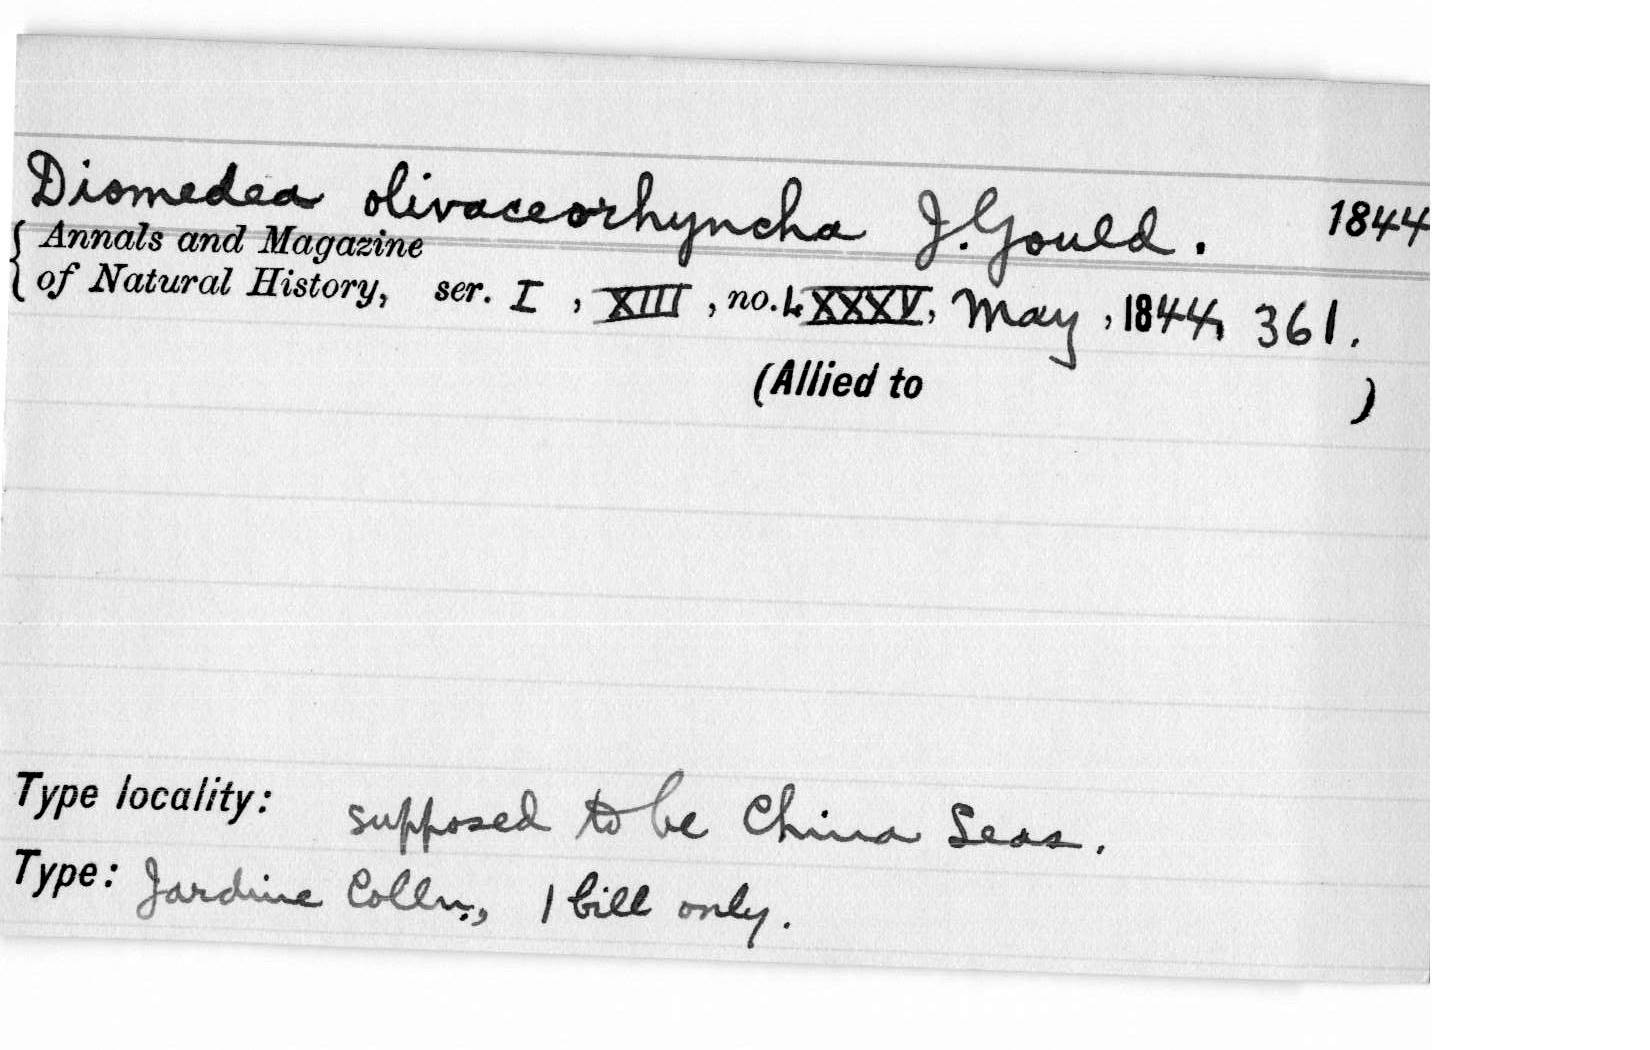 Diomedea olivaceorhyncha J. Gould. 1844
{ Annals and Magazine
of Natural History, ser. I , XIII , no. LXXXV, May , 1844, 361.
(Allied to )
Type locality: supposed to be China Seas.
Type: Jardine Colln., 1 bill only.